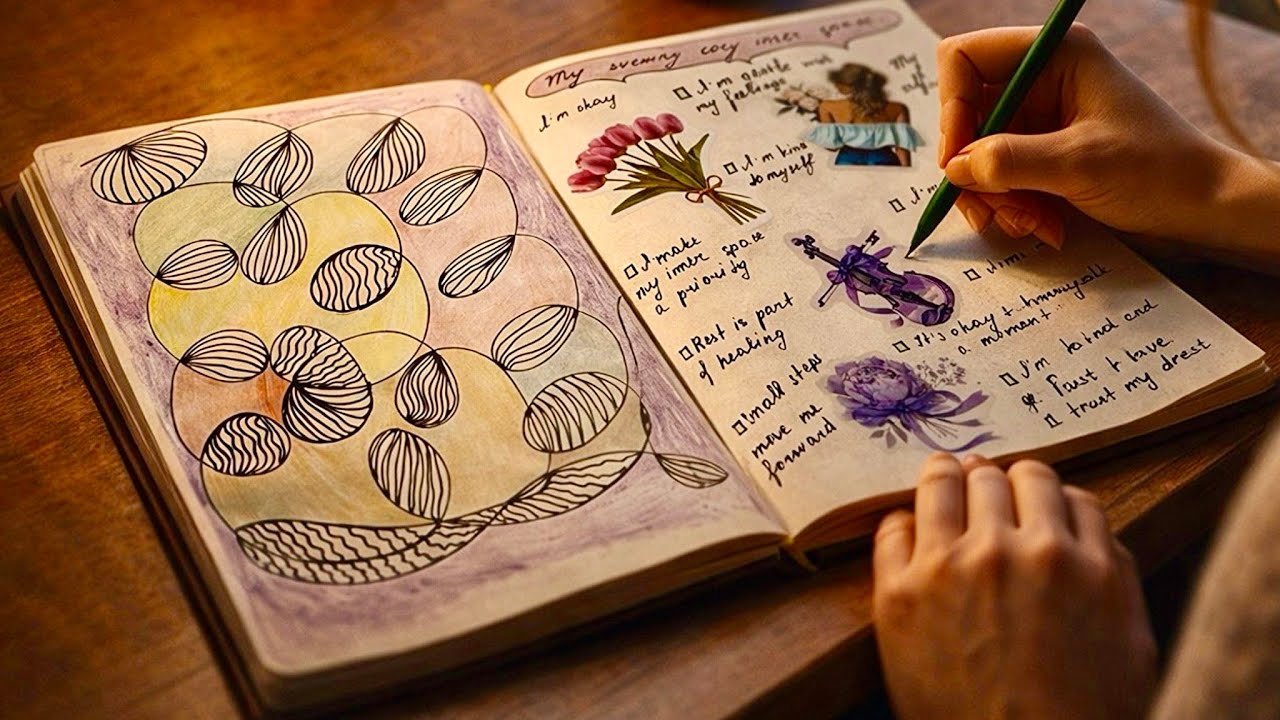 My evening cozy inner space
I'm okay
I'm gentle with
my feelings
My
I'm kind
to myself
I'm
I make
my inner space
a priority
Rest is part
of healing
Small steps
move me
forward
It's okay t
a moment..
I'm
and
I have
trust my